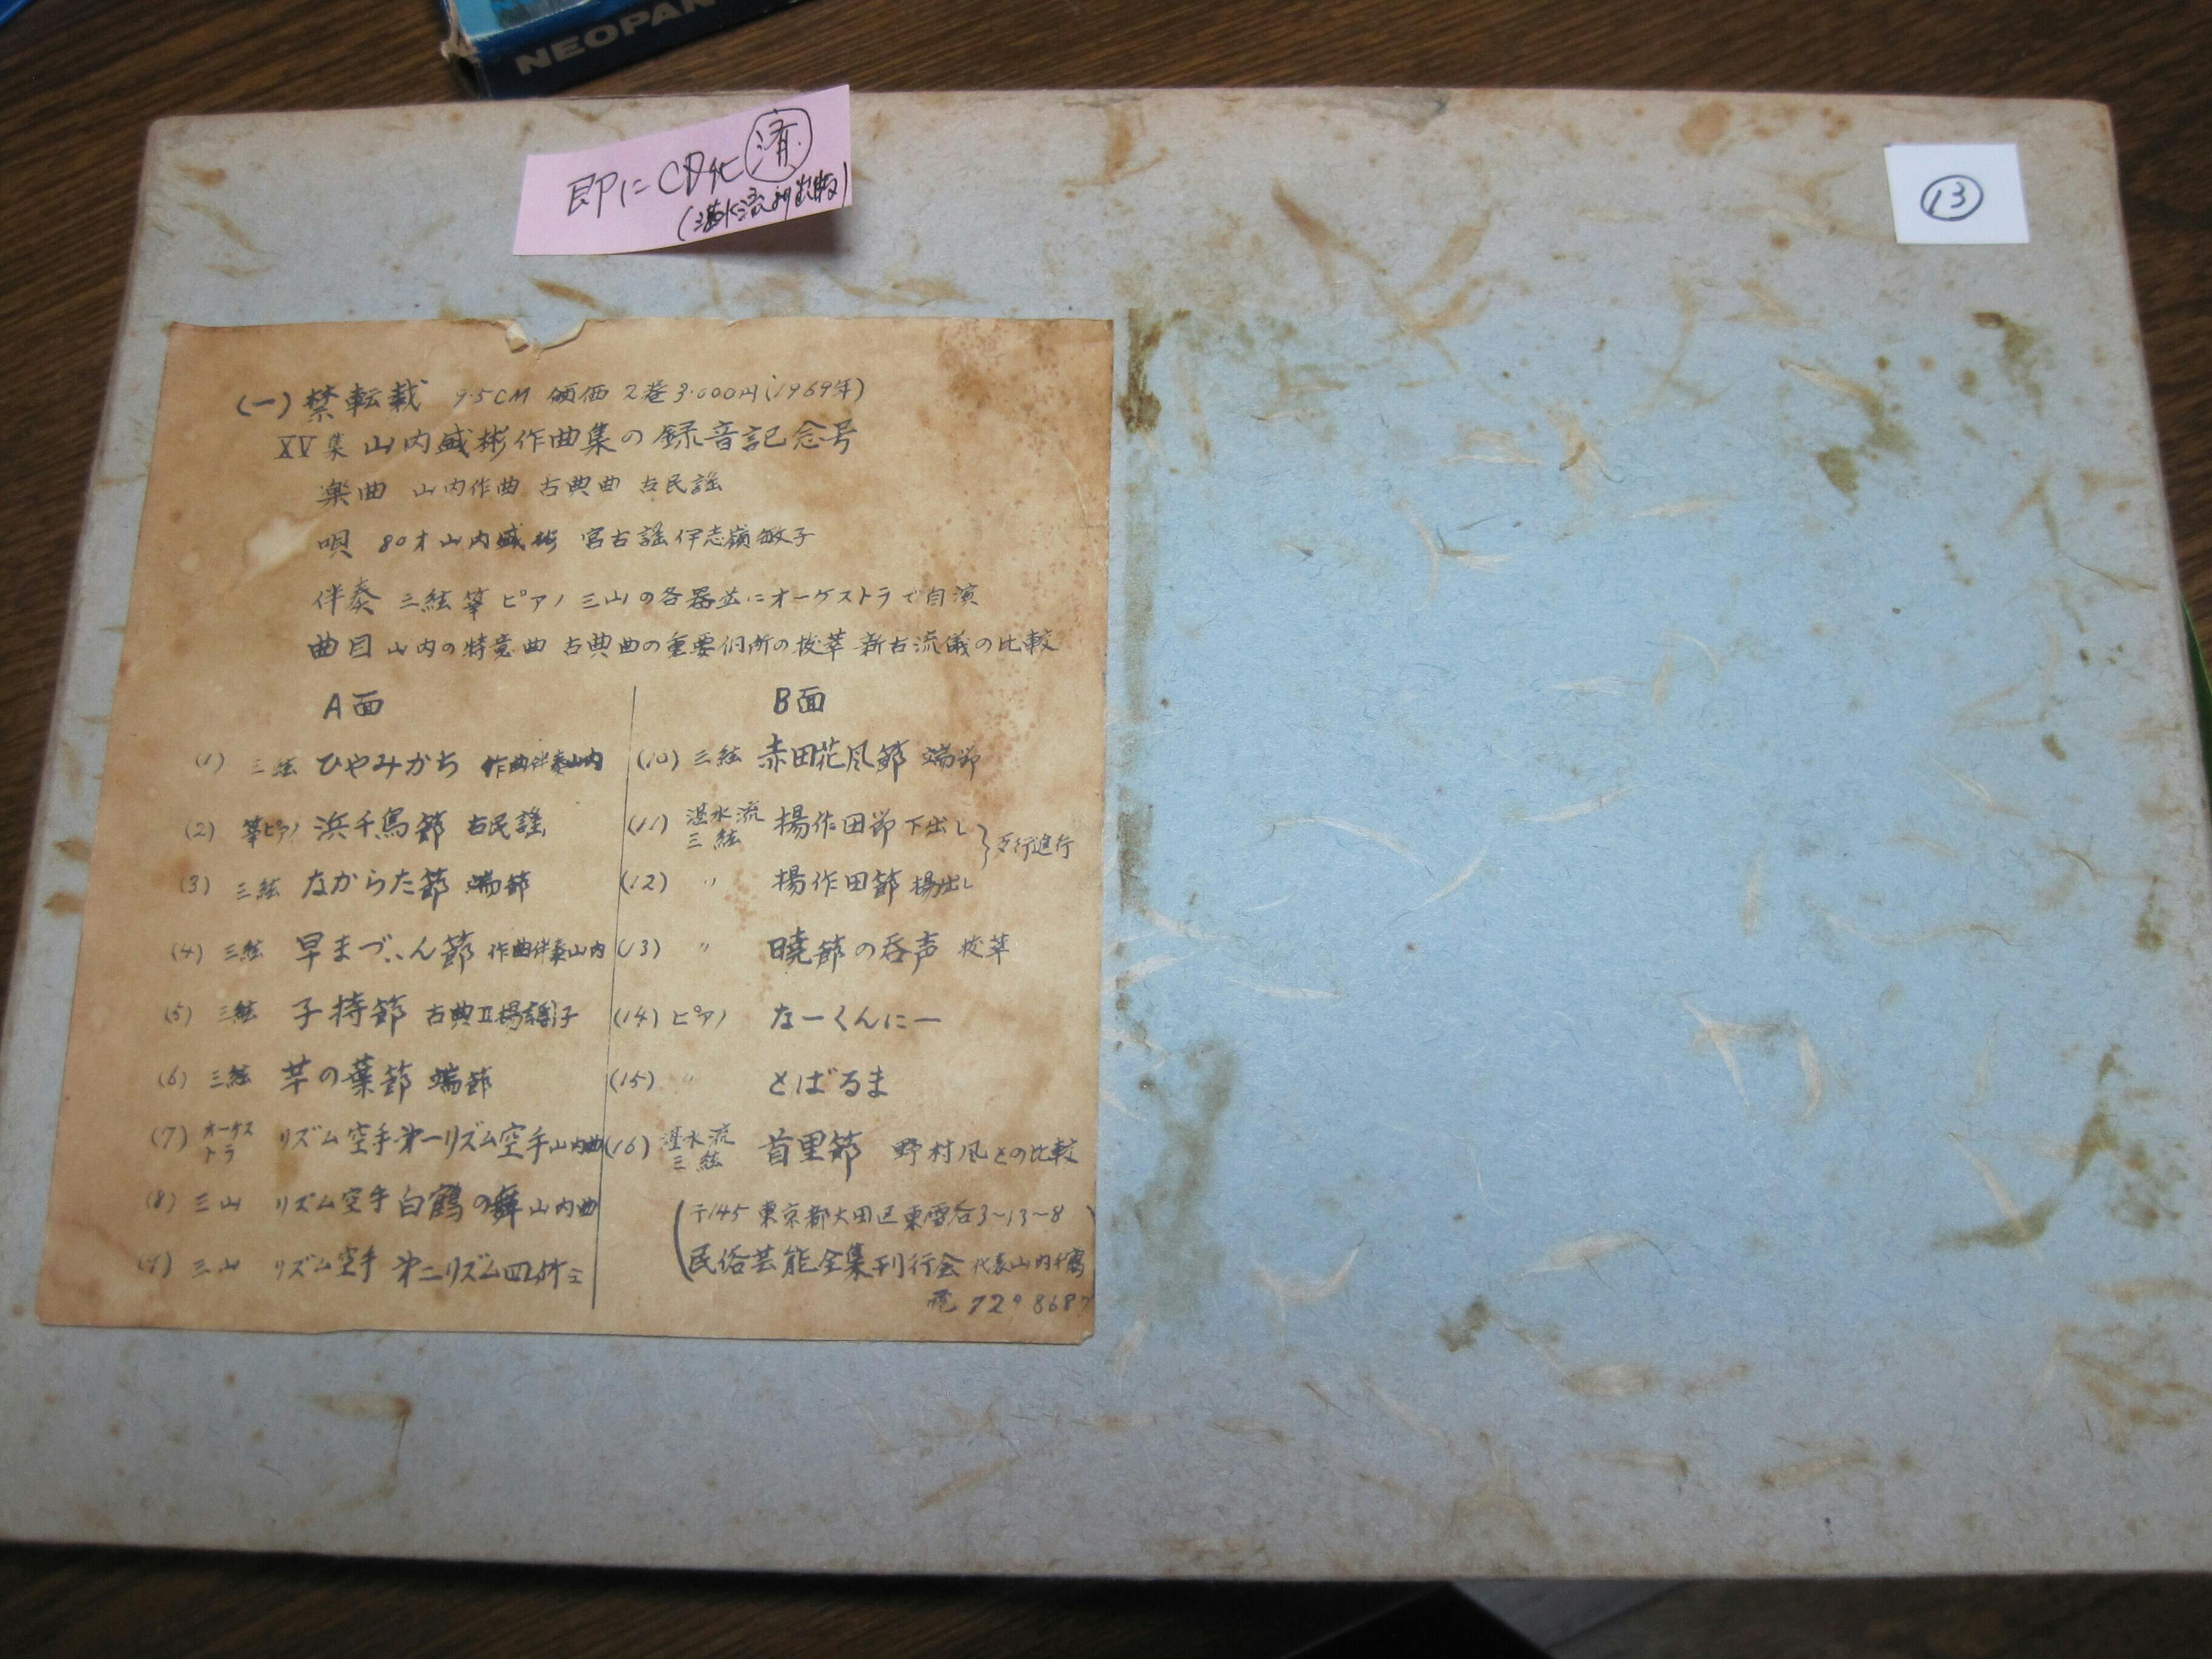 NEOPAN
即にCD化 済
(湛水流より出版)
13
(一) 禁転載 9.5CM 頒価 2巻3.000円(1969年)
XV集 山内盛彬作曲集の録音記念号
楽曲 山内作曲 古典曲 古民謡
唄 80才山内盛彬 宮古謡伊志嶺敏子
伴奏 三絃 箏 ピアノ 三山の各器並にオーケストラで自演
曲目 山内の特意曲 古典曲の重要個所の抜萃 新古流儀の比較
A面
(1) 三絃 ひやみかち 作曲伴奏山内
(2) 箏ピアノ 浜千鳥節 古民謡
(3) 三絃 ながらた節 端節
(4) 三絃 早まづん節 作曲伴奏山内
(5) 三絃 子持節 古典II揚調子
(6) 三絃 芋の葉節 端節
(7) オーケストラ リズム空手 第一リズム空手山内曲
(8) 三山 リズム空手 白鶴の舞 山内曲
(9) 三山 リズム空手 第二リズム四
B面
(10) 三絃 赤田花風節 端節
(11) 湛水流三絃 揚作田節 下出し
(12) 〃 揚作田節 揚出し
進行
(13) 〃 暁節の呑声 抜萃
(14) ピアノ なーくんにー
(15) 〃 とばるま
(16) 湛水流三絃 首里節 野村風との比較
〒145 東京都大田区東雪谷3-13-8
民俗芸能全集刊行会 代表山内
電 729 8687